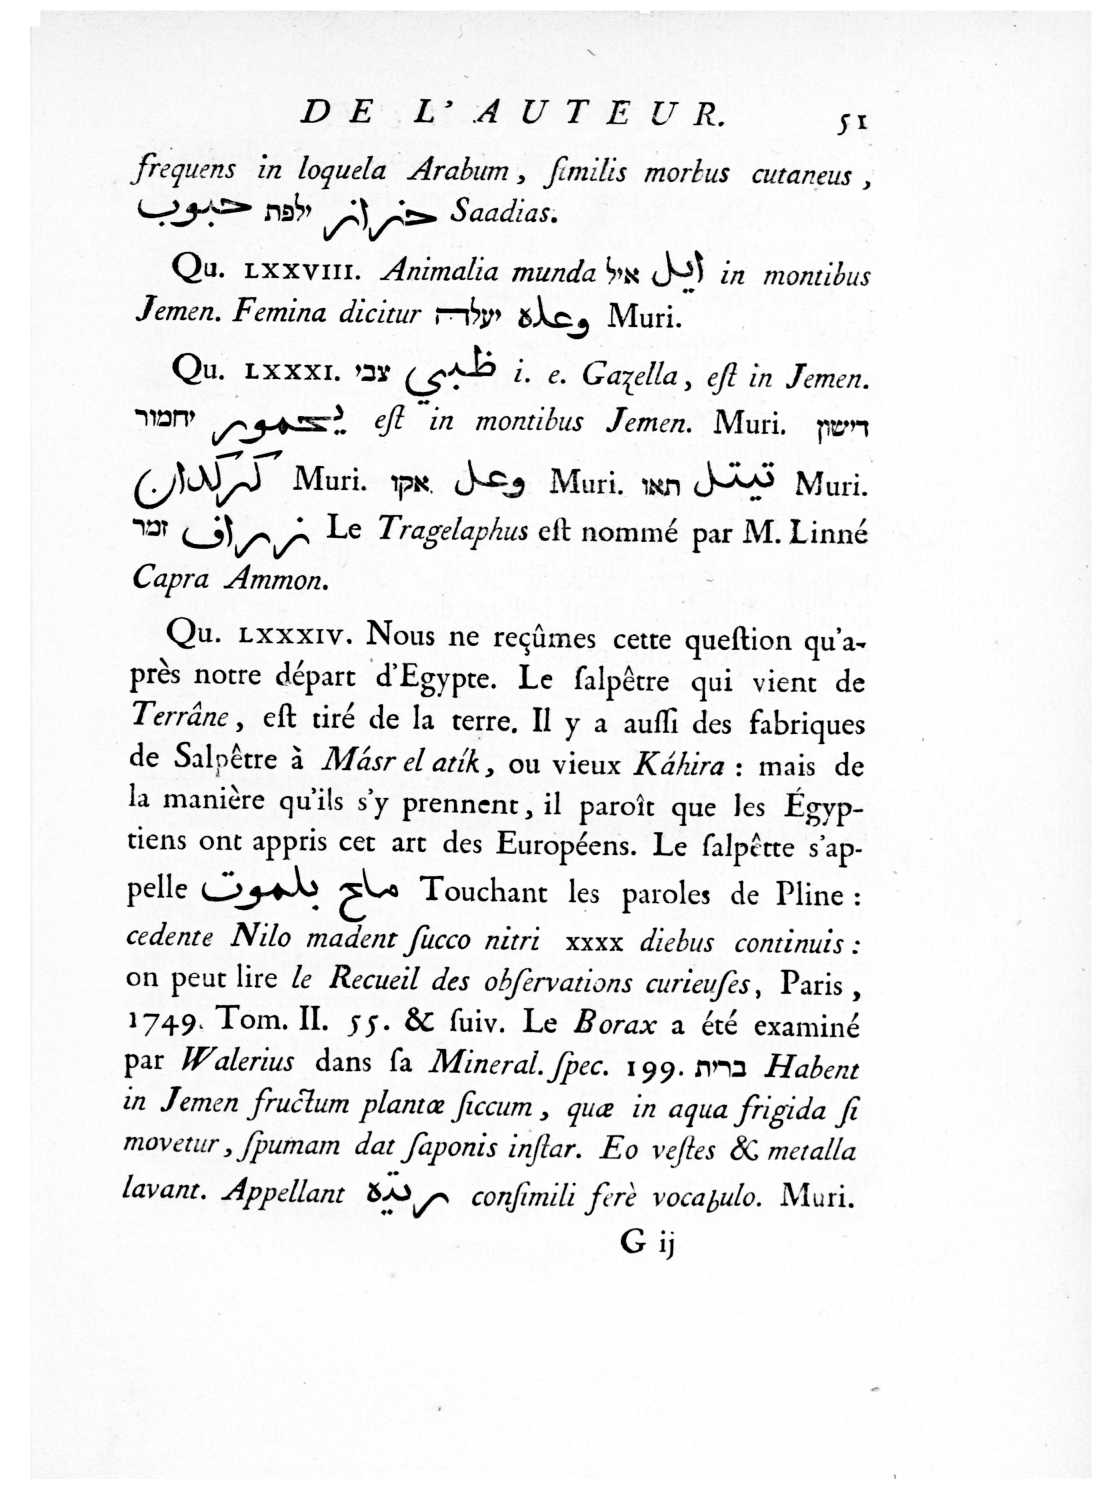 DE L'AUTEUR. 51
frequens in loquela Arabum, ſimilis morbus cutaneus,
حبوب ילפת حزاز Saadias.
Qu. LXXVIII. Animalia munda איל ايل in montibus
Jemen. Femina dicitur יעלה وعله Muri.
Qu. LXXXI. צבי ظبي i. e. Gazella, eſt in Jemen.
יחמור يحمور eſt in montibus Jemen. Muri. דישון
كركدان Muri. אקו وعل Muri. תאו تيتل Muri.
זמר زراف Le Tragelaphus eſt nommé par M. Linné
Capra Ammon.
Qu. LXXXIV. Nous ne reçûmes cette queſtion qu'a-
près notre départ d'Egypte. Le ſalpêtre qui vient de
Terrâne, eſt tiré de la terre. Il y a auſſi des fabriques
de Salpêtre à Másr el atík, ou vieux Káhira : mais de
la manière qu'ils s'y prennent, il paroît que les Égyp-
tiens ont appris cet art des Européens. Le ſalpêtte s'ap-
pelle ملح بلموت Touchant les paroles de Pline :
cedente Nilo madent ſucco nitri xxxx diebus continuis :
on peut lire le Recueil des obſervations curieuſes, Paris,
1749. Tom. II. 55. & ſuiv. Le Borax a été examiné
par Walerius dans ſa Mineral. ſpec. 199. ברית Habent
in Jemen fructum plantæ ſiccum, quæ in aqua frigida ſi
movetur, ſpumam dat ſaponis inſtar. Eo veſtes & metalla
lavant. Appellant ريته conſimili ferè vocabulo. Muri.
G ij